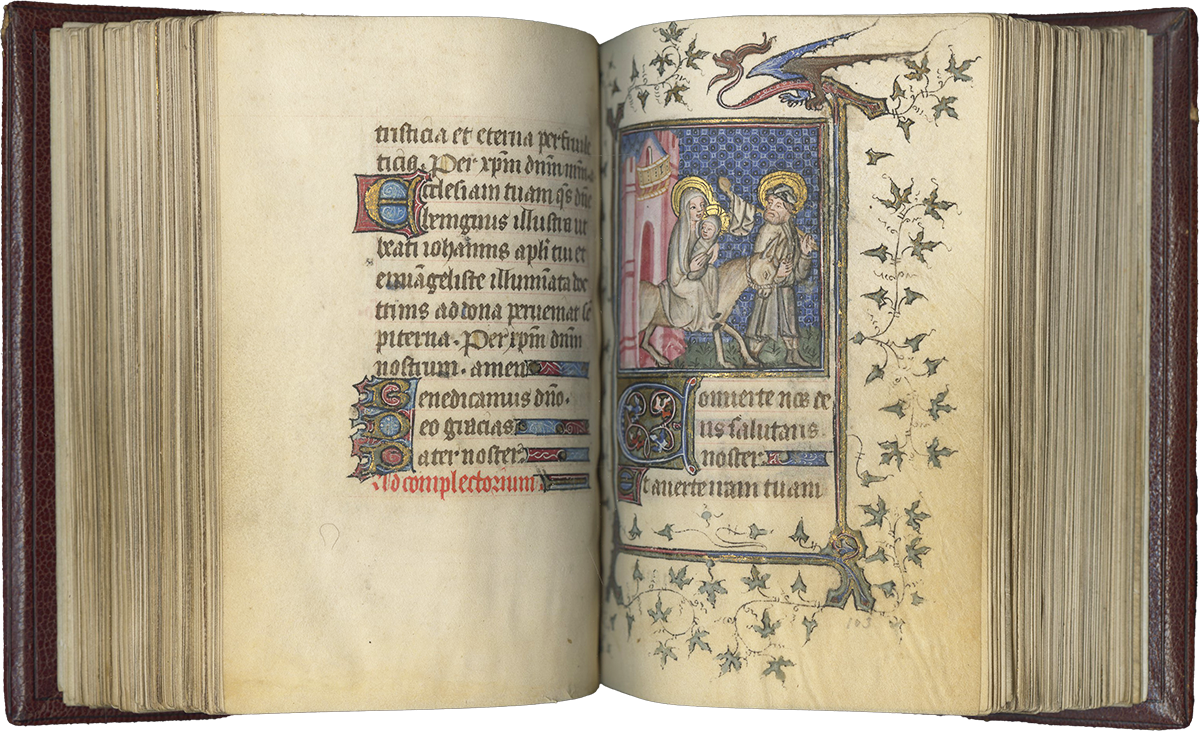 tristicia et eterna per frui le
ticia. Per xpm dnm nrm.
Ecclesiam tuam qs dne
benignus illustra ut
beati iohannis apli tui et
euuangeliste illuminata doc
trinis ad dona perueniat se
piterna. Per xpm dnm
nostrum. amen
Benedicamus dno.
Deo gracias
Pater noster.
Ad complectorium
Conuerte nos de
us salutaris
noster.
Et auerte iram tuam